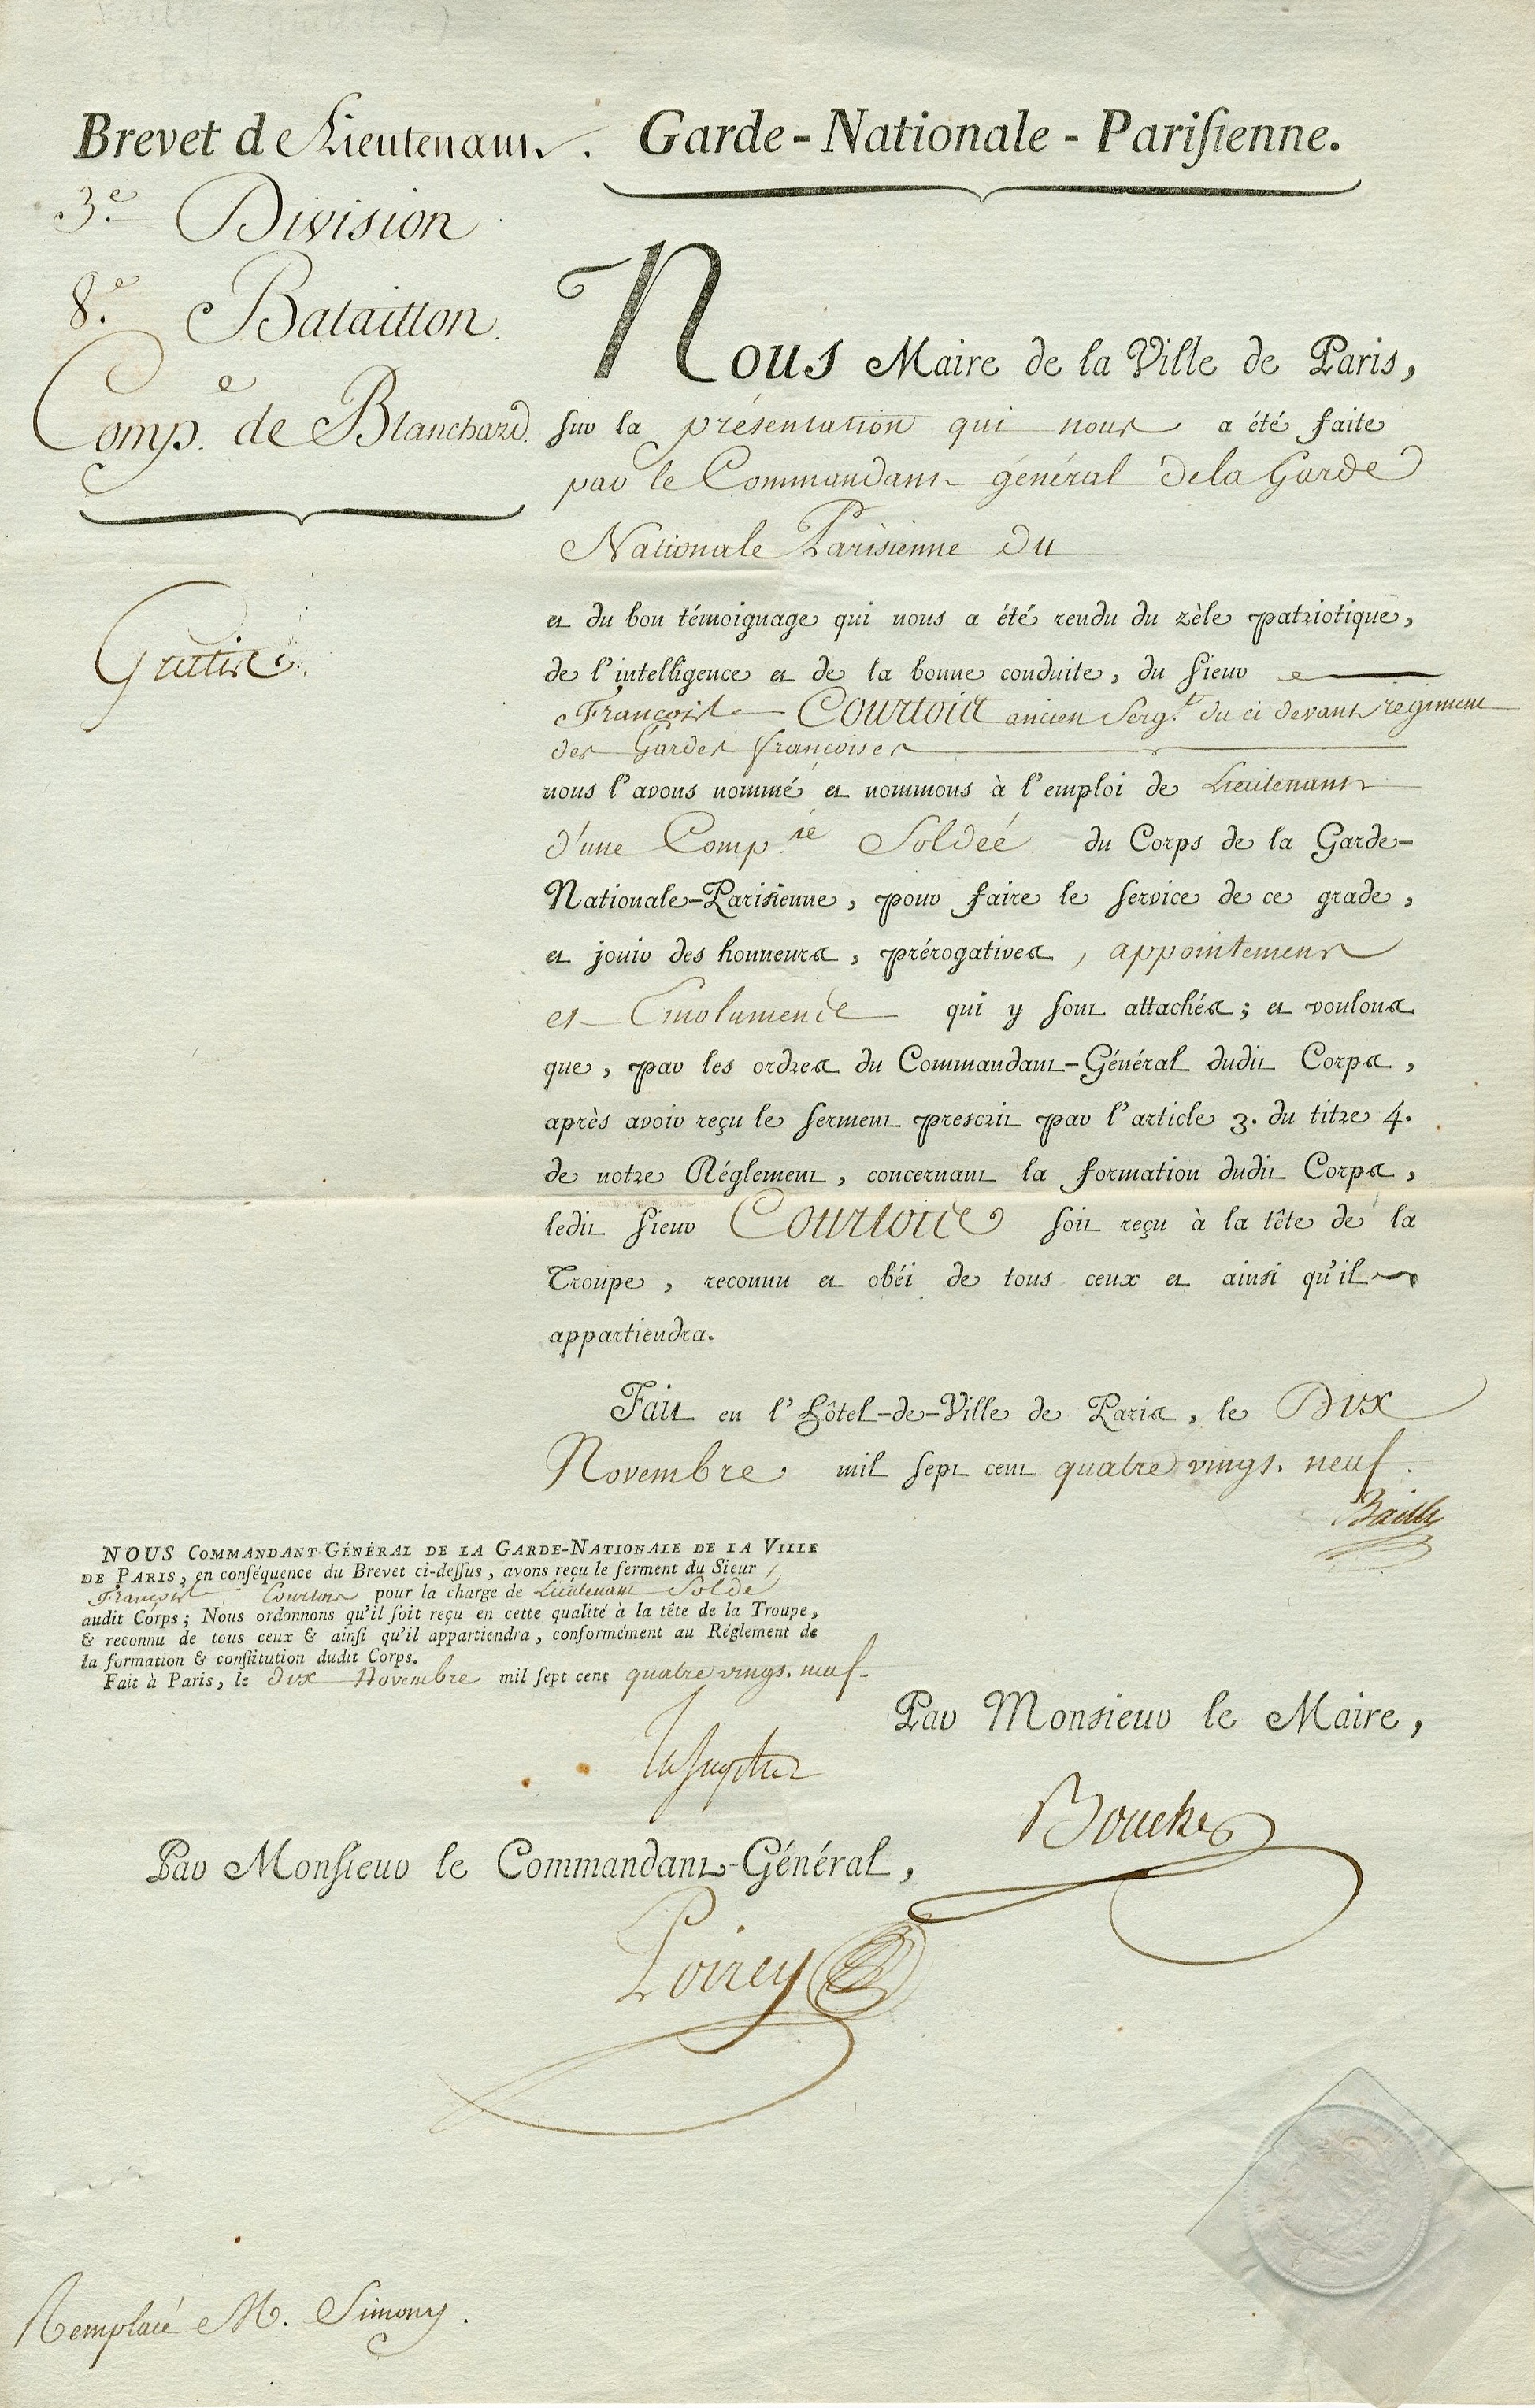 Brevet de Lieutenant.
3.e Division
8.e Bataillon.
Comp.e de Blanchard.
Gratis.
Garde-Nationale-Pariſienne.
Nous Maire de la Ville de Paris,
ſur la présentation qui nous a été faite
par le Commandant général de la Garde
Nationale Parisienne du
et du bon témoignage qui nous a été rendu du zèle patriotique,
de l'intelligence et de la bonne conduite, du ſieur
François Courtois ancien Serg.t du ci devant régiment
des Gardes françoises
nous l'avons nommé et nommons à l'emploi de Lieutenant
d'une Comp.ie Soldée du Corps de la Garde-
Nationale-Parisienne, pour faire le ſervice de ce grade,
et jouir des honneurs, prérogatives, appointemens
et Emolumens qui y ſont attachés; et voulons
que, par les ordres du Commandant-Général dudit Corps,
après avoir reçu le ſerment prescrit par l'article 3. du titre 4.
de notre Réglement, concernant la formation dudit Corps,
ledit ſieur Courtois ſoit reçu à la tête de la
Troupe, reconnu et obéi de tous ceux et ainsi qu'il
appartiendra.
Fait en l'Hôtel-de-Ville de Paris, le Dix
Novembre mil ſept cent quatre vingt. neuf.
Bailly
NOUS COMMANDANT-GÉNÉRAL DE LA GARDE-NATIONALE DE LA VILLE
DE PARIS, en conſéquence du Brevet ci-deſſus, avons reçu le ſerment du Sieur
François Courtois pour la charge de Lieutenant Soldé
audit Corps; Nous ordonnons qu'il ſoit reçu en cette qualité à la tête de la Troupe,
& reconnu de tous ceux & ainſi qu'il appartiendra, conformément au Réglement de
la formation & conſtitution dudit Corps.
Fait à Paris, le dix Novembre mil ſept cent quatre vingt. neuf.
Lafayette
Par Monsieur le Maire,
Boucher
Par Monſieur le Commandant-Général,
Poirey
Remplacé M. Simony.